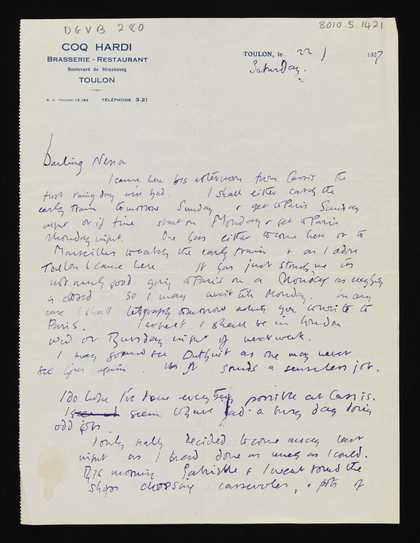 DGVB 280
8010.5.1421
COQ HARDI
BRASSERIE - RESTAURANT
Boulevard de Strasbourg
TOULON
TÉLÉPHONE 3.21
TOULON, le 22 / 1927
Saturday.
Darling Nessa
I came here this afternoon from Cassis the
first rainy day we had. I shall either catch the
early train tomorrow Sunday & get to Paris Sunday
night or if fine start on Monday & get to Paris
Monday night. One has either to come here or to
Marseilles to catch the early train & as I adore
Toulon I came here. It has just struck me its
not much good going to Paris on a Monday as everything
is closed so I may wait till Monday. In any
case I shall telegraph tomorrow where you can write to
Paris. I expect I shall be in London
Wed or Thursday night of next week.
I may go and see as one may never
see again. It sounds a senseless job.
I do hope I've done everything possible at Cassis.
I seem to have had a busy day doing
odd jobs.
I only really decided to come away last
night as I had done as much as I could.
This morning Gabrielle & I went round the
shops choosing casseroles, & pots of